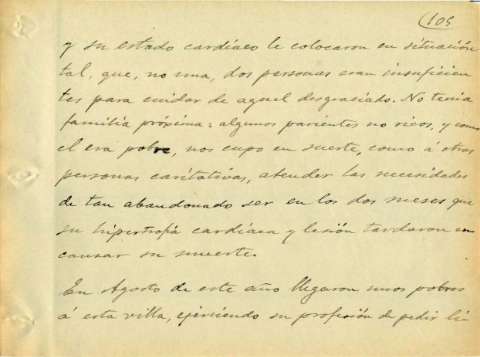 (105
y su estado cardíaco le colocaron en situación
tal, que, no una, dos personas eran insuficien
tes para cuidar de aquel desgraciado. No tenia
familia próxima: algunos parientes no ricos, y como
el era pobre, nos cupo en suerte, como á otras
personas caritativas, atender las necesidades
de tan abandonado ser en los dos meses que
su hipertrofia cardíaca y lesión tardaron en
causar su muerte.
En Agosto de este año llegaron unos pobres
á esta villa, ejerciendo su profesión de pedir li